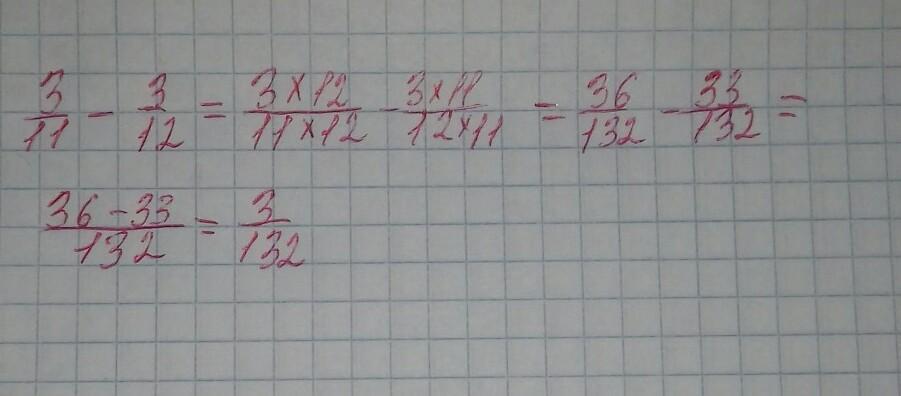 3/11 - 3/12 = 3×12/11×12 - 3×11/12×11 = 36/132 - 33/132 =
36-33/132 = 3/132